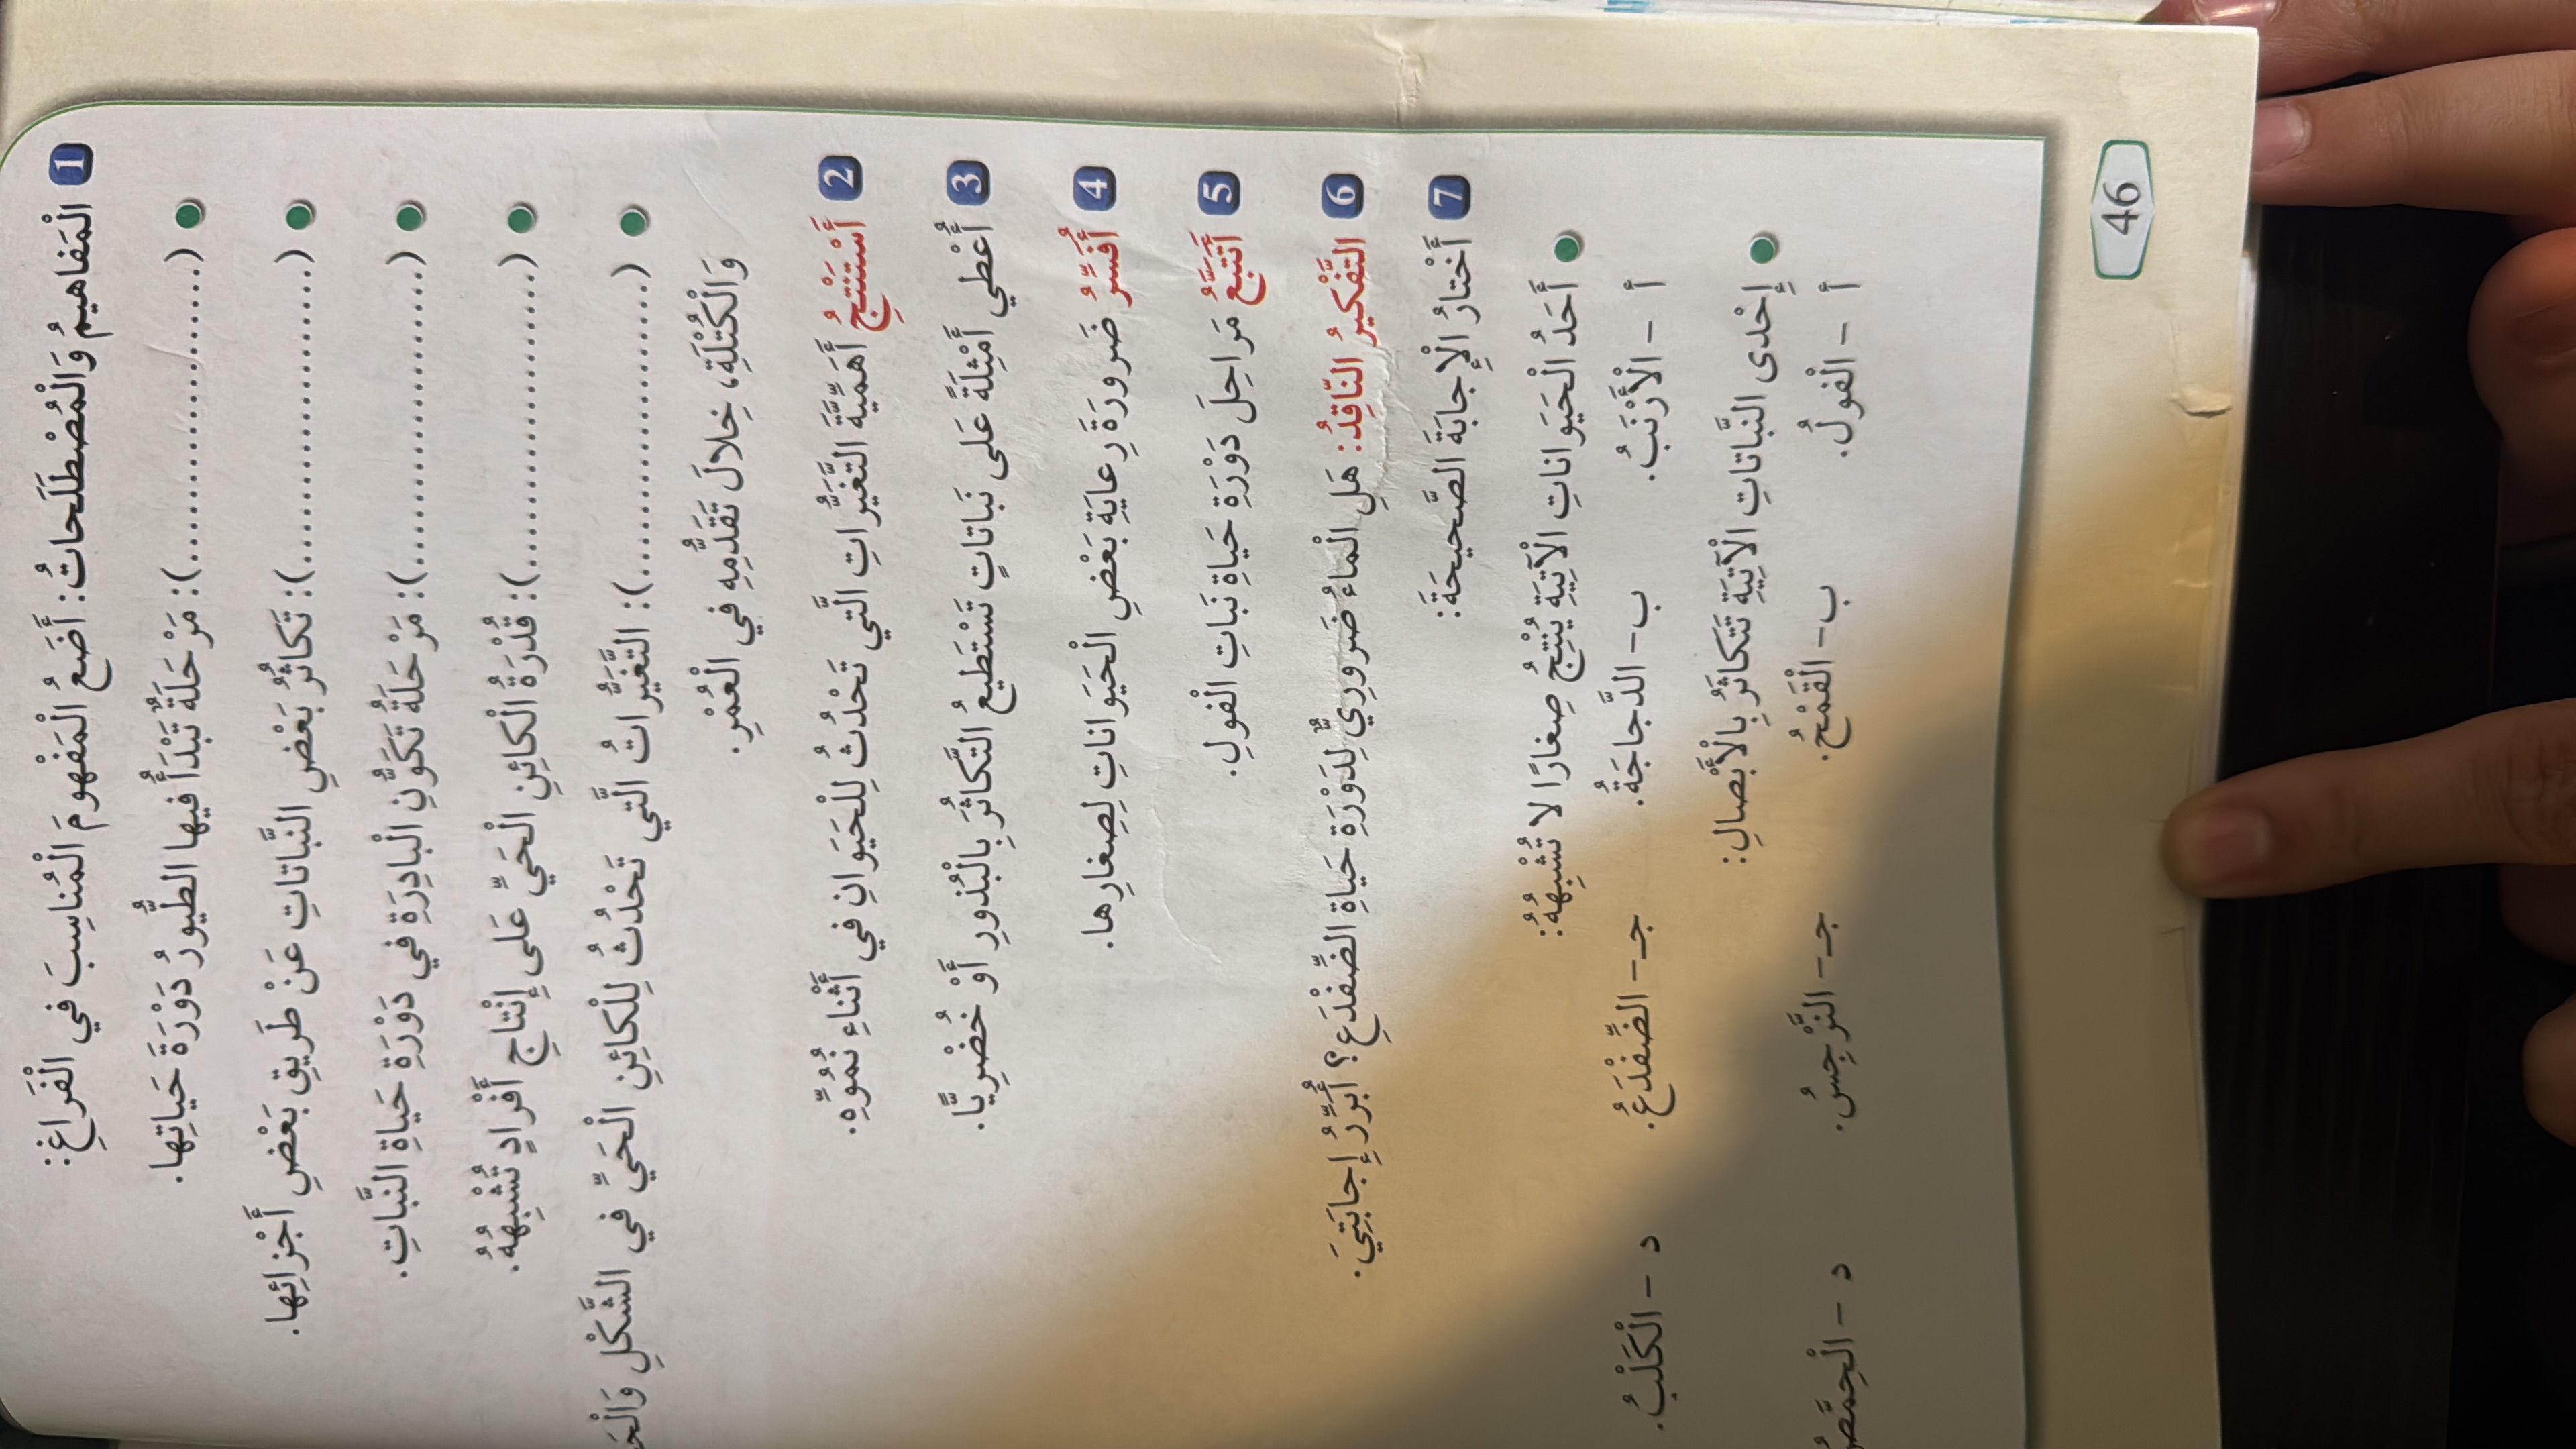 1 الْمَفاهيمُ وَالْمُصْطَلَحاتُ: أَضَعُ الْمَفْهومَ الْمُناسِبَ في الْفَراغِ:
(......................): مَرْحَلَةٌ تَبْدَأُ فيها الطُّيورُ دَوْرَةَ حَياتِها.
(......................): تَكاثُرُ بَعْضِ النَّباتاتِ عَنْ طَريقِ بَعْضِ أَجْزائِها.
(......................): مَرْحَلَةُ تَكَوُّنِ الْبادِرَةِ في دَوْرَةِ حَياةِ النَّباتِ.
(......................): قُدْرَةُ الْكائِنِ الْحَيِّ عَلى إِنْتاجِ أَفْرادٍ تُشْبِهُهُ.
(......................): التَّغَيُّراتُ الَّتي تَحْدُثُ لِلْكائِنِ الْحَيِّ في الشَّكْلِ
وَالْكُتْلَةِ، خِلالَ تَقَدُّمِهِ في الْعُمْرِ.
2 أَسْتَنْتِجُ أَهَمِّيَّةَ التَّغَيُّراتِ الَّتي تَحْدُثُ لِلْحَيَوانِ في أَثْناءِ نُمُوِّهِ.
3 أُعْطي أَمْثِلَةً عَلى نَباتاتٍ تَسْتَطيعُ التَّكاثُرَ بِالْبُذورِ أَوْ خُضْرِيًّا.
4 أُفَسِّرُ ضَرورَةَ رِعايَةِ بَعْضِ الْحَيَواناتِ لِصِغارِها.
5 أَتَتَبَّعُ مَراحِلَ دَوْرَةِ حَياةِ نَباتِ الْفولِ.
6 التَّفْكيرُ النّاقِدُ: هَلِ الْماءُ ضَرورِيٌّ لِدَوْرَةِ حَياةِ الضِّفْدَعِ؟ أُبَرِّرُ إِجابَتِيَ.
7 أَخْتارُ الْإِجابَةَ الصَّحيحَةَ:
أَحَدُ الْحَيَواناتِ الْآتِيَةِ يُنْتِجُ صِغارًا لا تُشْبِهُهُ:
أ - الْأَرْنَبُ. ب- الدَّجاجَةُ. جـ- الضِّفْدَعُ. د - الْكَلْبُ.
إِحْدى النَّباتاتِ الْآتِيَةِ تَتَكاثَرُ بِالْأَبْصالِ:
أ - الْفولُ. ب- الْقَمْحُ. جـ- النَّرْجِسُ. د - الْحِمَّصُ
46